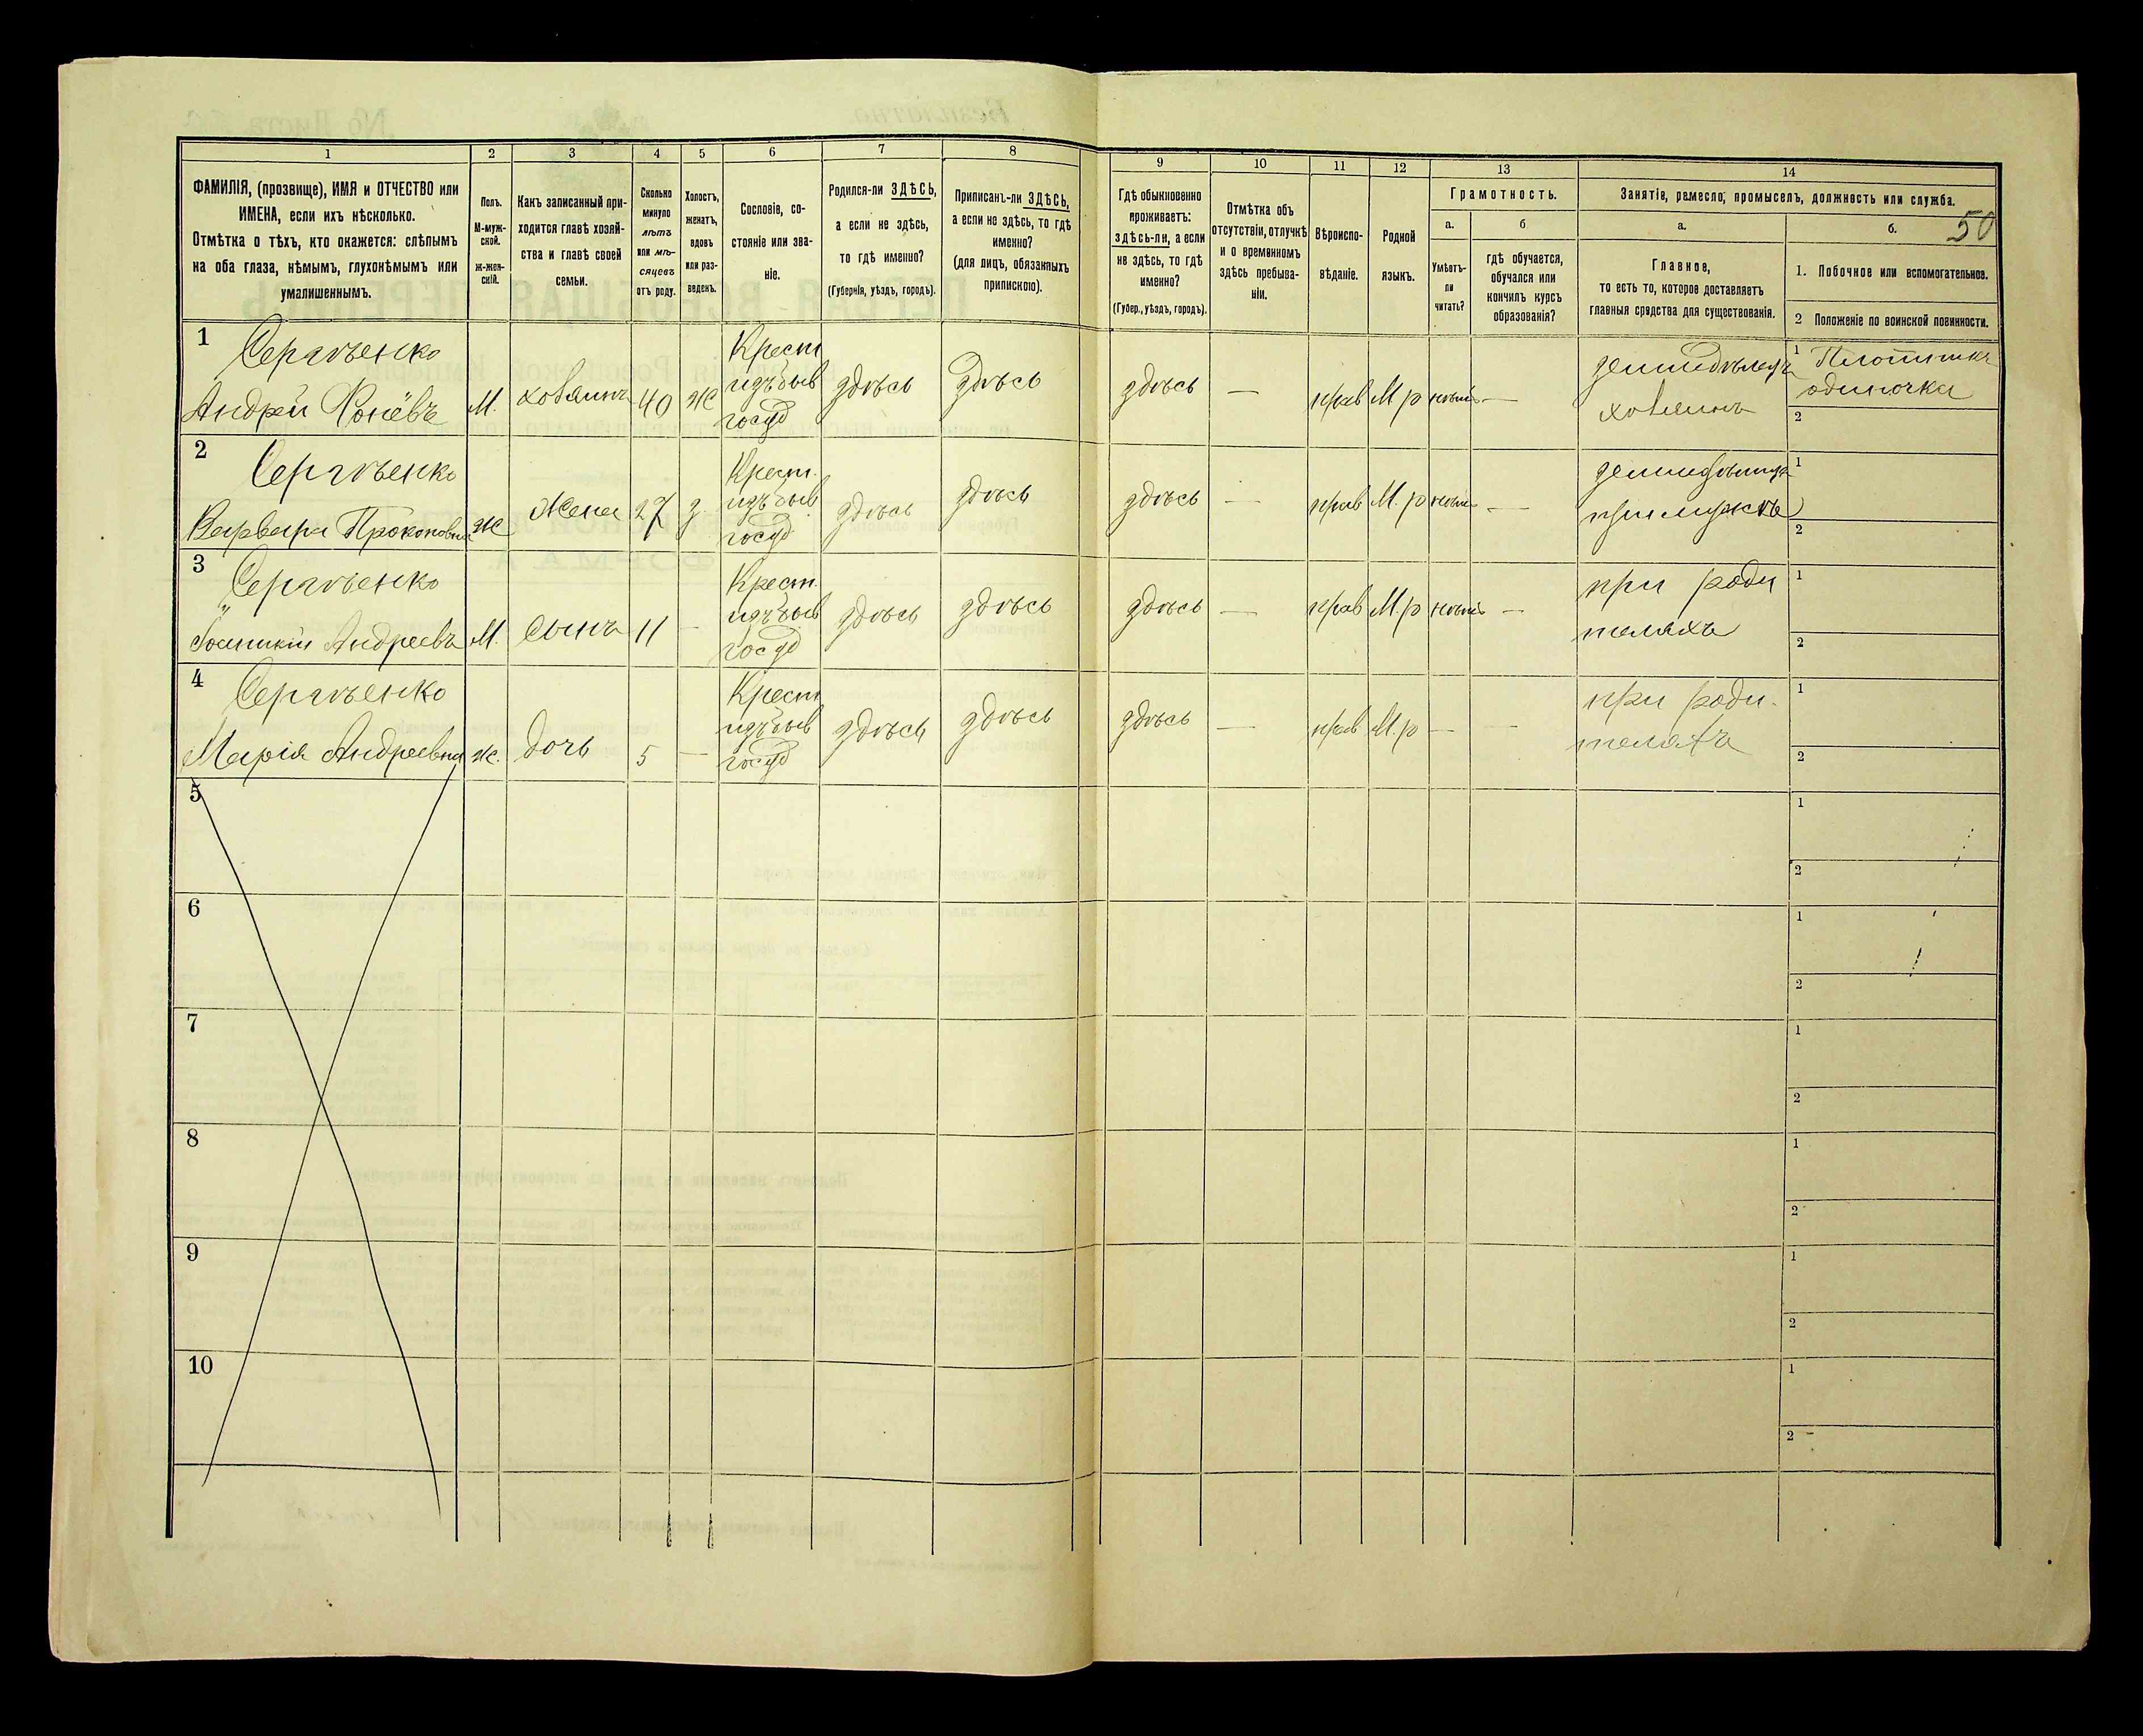 1
2
3
4
5
6
7
8
9
10
11
12
13
14
ФАМИЛІЯ, (прозвище), ИМЯ и ОТЧЕСТВО или
ИМЕНА, если ихъ нѣсколько.
Отмѣтка о тѣхъ, кто окажется: слѣпымъ
на оба глаза, нѣмымъ, глухонѣмымъ или
умалишеннымъ.
Полъ.
М-муж-
ской.
ж-жен-
скій.
Какъ записанный при-
ходится главѣ хозяй-
ства и главѣ своей
семьи.
Сколько
минуло
лѣтъ
или мѣ-
сяцевъ
отъ роду.
Холостъ,
женатъ,
вдовъ
или раз-
веденъ.
Сословіе, со-
стояніе или зва-
ніе.
Родился-ли ЗДѢСЬ,
а если не здѣсь,
то гдѣ именно?
(Губернія, уѣздъ, городъ).
Приписанъ-ли ЗДѢСЬ,
а если не здѣсь, то гдѣ
именно?
(для лицъ, обязанныхъ
припискою).
Гдѣ обыкновенно
проживаетъ:
здѣсь-ли, а если
не здѣсь, то гдѣ
именно?
(Губер., уѣздъ, городъ).
Отмѣтка объ
отсутствіи, отлучкѣ
и о временномъ
здѣсь пребыва-
ніи.
Вѣроиспо-
вѣданіе.
Родной
языкъ.
Грамотность.
а.
Умѣетъ-
ли
читать?
б
гдѣ обучается,
обучался или
кончилъ курсъ
образованія?
Занятіе, ремесло, промыселъ, должность или служба.
50
а.
Главное,
то есть то, которое доставляетъ
главныя средства для существованія.
б.
1. Побочное или вспомогательное.
2 Положеніе по воинской повинности.
1 Сергѣенко
Андрей Фонёвъ М. хозяинъ 40 Ж
Крест
изъ быв
госуд
здѣсь здѣсь здѣсь — прав М р нѣтъ —
земледѣлецъ
хозяинъ
1 Плотникъ
одиночка
2
2 Сергѣенко
Варвара Прокоповна Ж Жена 27 з.
Крест.
изъ быв
госуд
здѣсь здѣсь здѣсь — прав М. р нѣтъ —
при мужѣ
1
2
3 Сергѣенко
Андреевъ М. Сынъ 11 —
Крест.
изъ быв
госуд
здѣсь здѣсь здѣсь — прав М. р нѣтъ —
при роди
теляхъ
1
2
4 Сергѣенко
Марія Андреевна Ж. дочь 5 —
Крест
изъ быв
госуд
здѣсь здѣсь здѣсь — прав М. р — —
при роди-
теляхъ
1
2
5
1
2
6
1
2
7
1
2
8
1
2
9
1
2
10
1
2